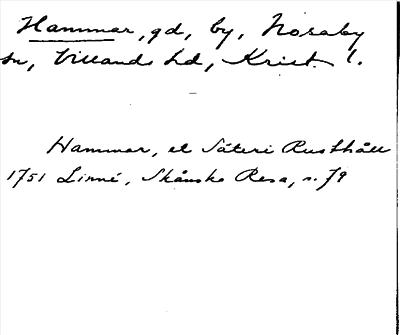 Hammar, gd, by, Nosaby
sn, Villands hd, Krist. l.
Hammar, et Säteri Rusthåll
1751 Linné, Skånska Resa, s. 79